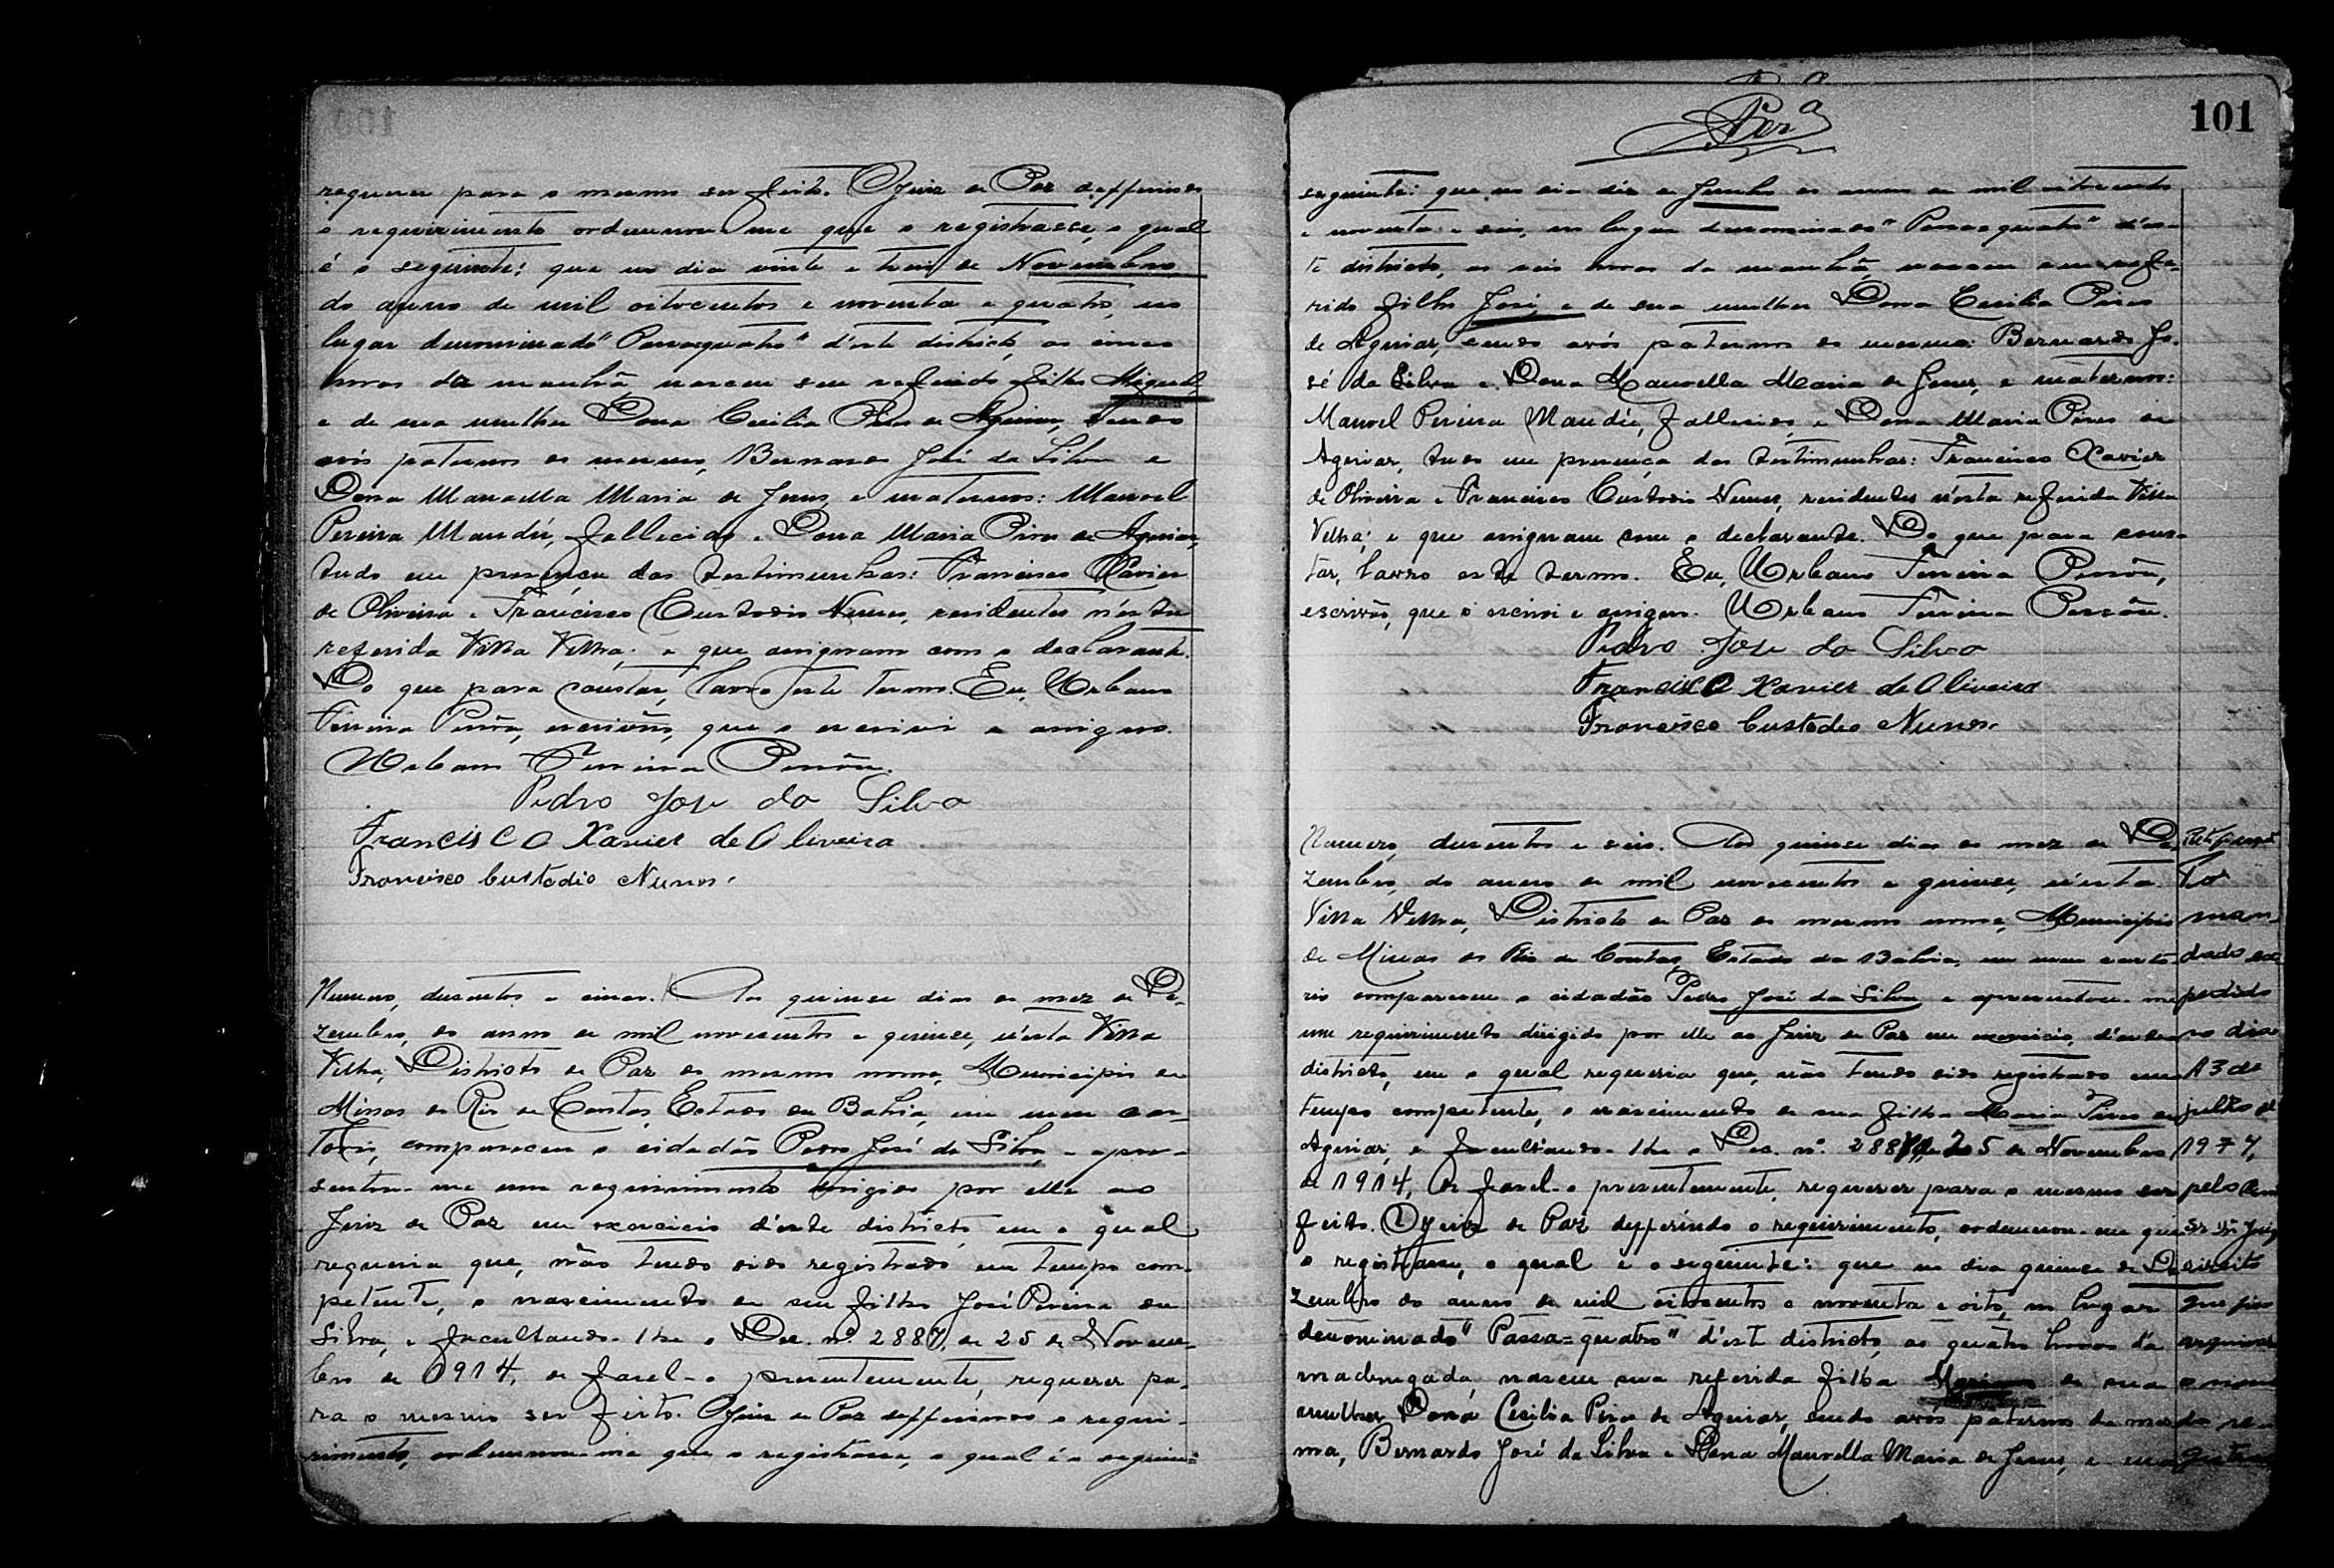 requerer para o mesmo ser feito. O Juiz de Paz defferindo
o requirimento ordennou-me que o registrasse, o qual
é o seguinte: que no dia vinte e treis de Novembro
do anno de mil oitocentos e noventa e quatro, no
lugar denominado "Passa=quatro" d'este districto, as cinco
horas da manhã nasceu seu referido filho Miguel,
e de sua mulher Dona Cecilia Pires de Aguiar, sendo
avós paternos do mesmo, Bernardo José da Silva e
Dona Manoella Maria de Jesus, e maternos: Manoel
Pereira Mandú, fallecido e Dona Maria Pires de Aguiar,
tudo em presença das testimunhas: Francisco Xavier
de Oliveira e Francisco Custodio Nunes, residentes n'esta
referida Villa Velha; e que assignam com o declarante.
Do que para constar, lavro este termo. Eu, Urbano
Ferreira Pessôa, escrivão, que o escrivi e assigno.
Urbano Ferreira Pessôa.
Pedro Jose da Silva
Francisco Xavier de Oliveira
Francisco Custodio Nunes.
Numero, dusentos e cinco. Aos quinse dias do mez de De-
zembro, do anno de mil novecentos e quinse, n'esta Villa
Velha, Districto de Paz do mesmo nome, Municipio de
Minas do Rio de Contas, Estado da Bahia, em meu car-
torio, compareceu o cidadão Pedro José da Silva, e apre-
sentou-me um requirimento dirigido por elle ao
Juiz de Paz em exercicio d'este districto, em o qual
requeria que, não tendo sido registrado em tempo com-
petente, o nascimento de seu filho José Pereira da
Silva, e facultando-lhe o Dec. nº 2887, de 25 de Novem-
bro de 1914, de fasel-o presentemente, requerer pa-
ra o mesmo ser feito. O Juiz de Paz defferindo o requi-
rimento, ordennou-me que o registrasse, o qual é o seguin=
101
seguinte: que no dia dez de Junho do anno de mil oitocentos
e noventa e seis, no lugar denominado "Passa=quatro" d'es-
te districto, as seis horas da manhã, nasceu seu refe-
rido filho José, e de sua mulher Dona Cecilia Pires
de Aguiar, sendo avós paternos do mesmo: Bernardo Jo-
sé da Silva e Dona Manoella Maria de Jesus, e maternos:
Manoel Pereira Mandú, fallecido, e Dona Maria Pires de
Aguiar, tudo em presença das testimunhas: Francisco Xavier
de Oliveira e Francisco Custodio Nunes, residentes n'esta referida Villa
Velha; e que assignam com o declarante. Do que para cons-
tar, lavro este termo. Eu, Urbano Ferreira Pessôa,
escrivão, que o escrivi e assigno. Urbano Ferreira Pessôa.
Pedro Jose da Silva
Francisco Xavier de Oliveira
Francisco Custodio Nunes.
Numero, dusentos e seis. Aos quinse dias do mez de De-
zembro, do anno de mil novecentos e quinse, n'esta
Villa Velha, Districto de Paz do mesmo nome, Municipio
de Minas do Rio de Contas, Estado da Bahia, em meu carto-
rio compareceu o cidadão Pedro José da Silva, e apresentou-me
um requirimento dirigido por elle ao Juiz de Paz em exercicio, d'este
districto, em o qual requeria que, não tendo sido registrado em
tempo competente, o nascimento de sua filha Maria Pires de
Aguiar, e facultando-lhe o Dec. nº 2887, de 25 de Novembro
de 1914, de fasel-o presentemente, requerer para o mesmo ser
feito. O Juiz de Paz defferindo o requirimento, ordennou-me que
o registrasse, o qual é o seguinte: que no dia quinse de De-
zembro do anno de mil oitocentos e noventa e oito, no lugar
denominado "Passa=quatro" d'este districto, as quatro horas da
madrugada, nasceu sua referida filha de sua
mulher Dona Cecilia Pires de Aguiar, sendo avós paternos da mes-
ma, Bernardo José da Silva e Dona Manoella Maria de Jesus, e ma
man-
dado ex-
pedido
no dia
13 de
julho de
1977,
pelo
Sr. Dr. Juiz
de Direito
que fica
arquivado